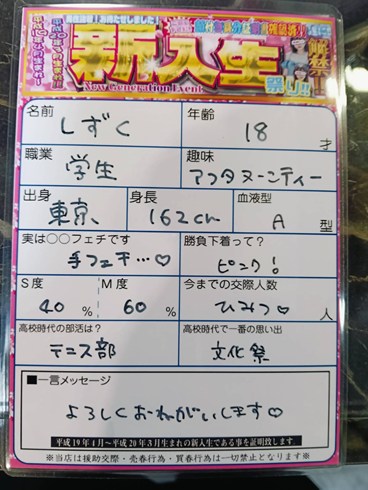 高校卒業！お待たせしました！
解禁!!
新入生
祭り!!
New Generation Event
名前
しずく
年齢
18才
職業
学生
趣味
アフタヌーンティー
出身
東京
身長
162cm
血液型
A型
実は○○フェチです
手フェチ…♡
勝負下着って？
ピンク！
S度
40%
M度
60%
今までの交際人数
ひみつ♡人
高校時代の部活は？
テニス部
高校時代で一番の思い出
文化祭
■一言メッセージ
よろしくおねがいします♡
平成19年4月～平成20年3月生まれの新入生である事を証明致します。
※当店は援助交際・売春行為・買春行為は一切禁止となります※